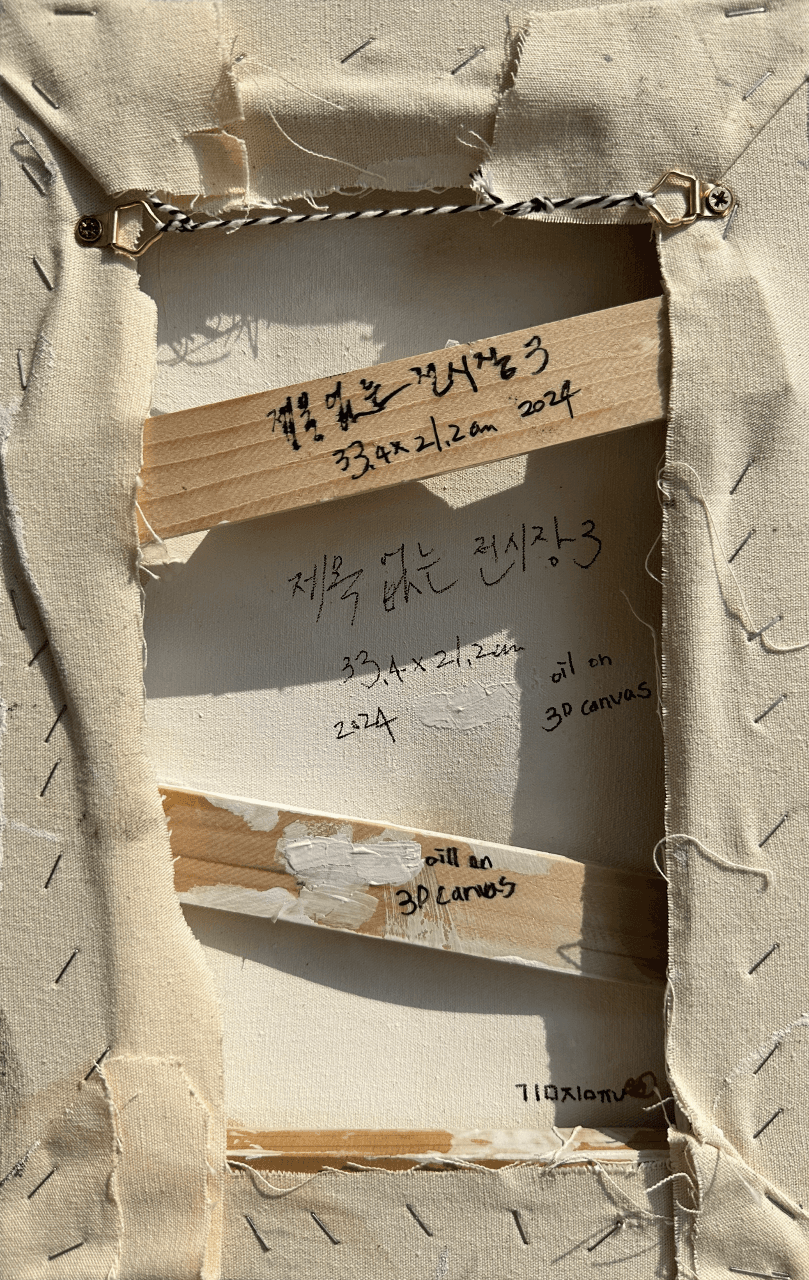 제목 없는 전시장 3
33.4 x 21.2 cm 2024
제목 없는 전시장 3
33.4 x 21.2 cm
2024
oil on
3D canvas
oil on
3D canvas